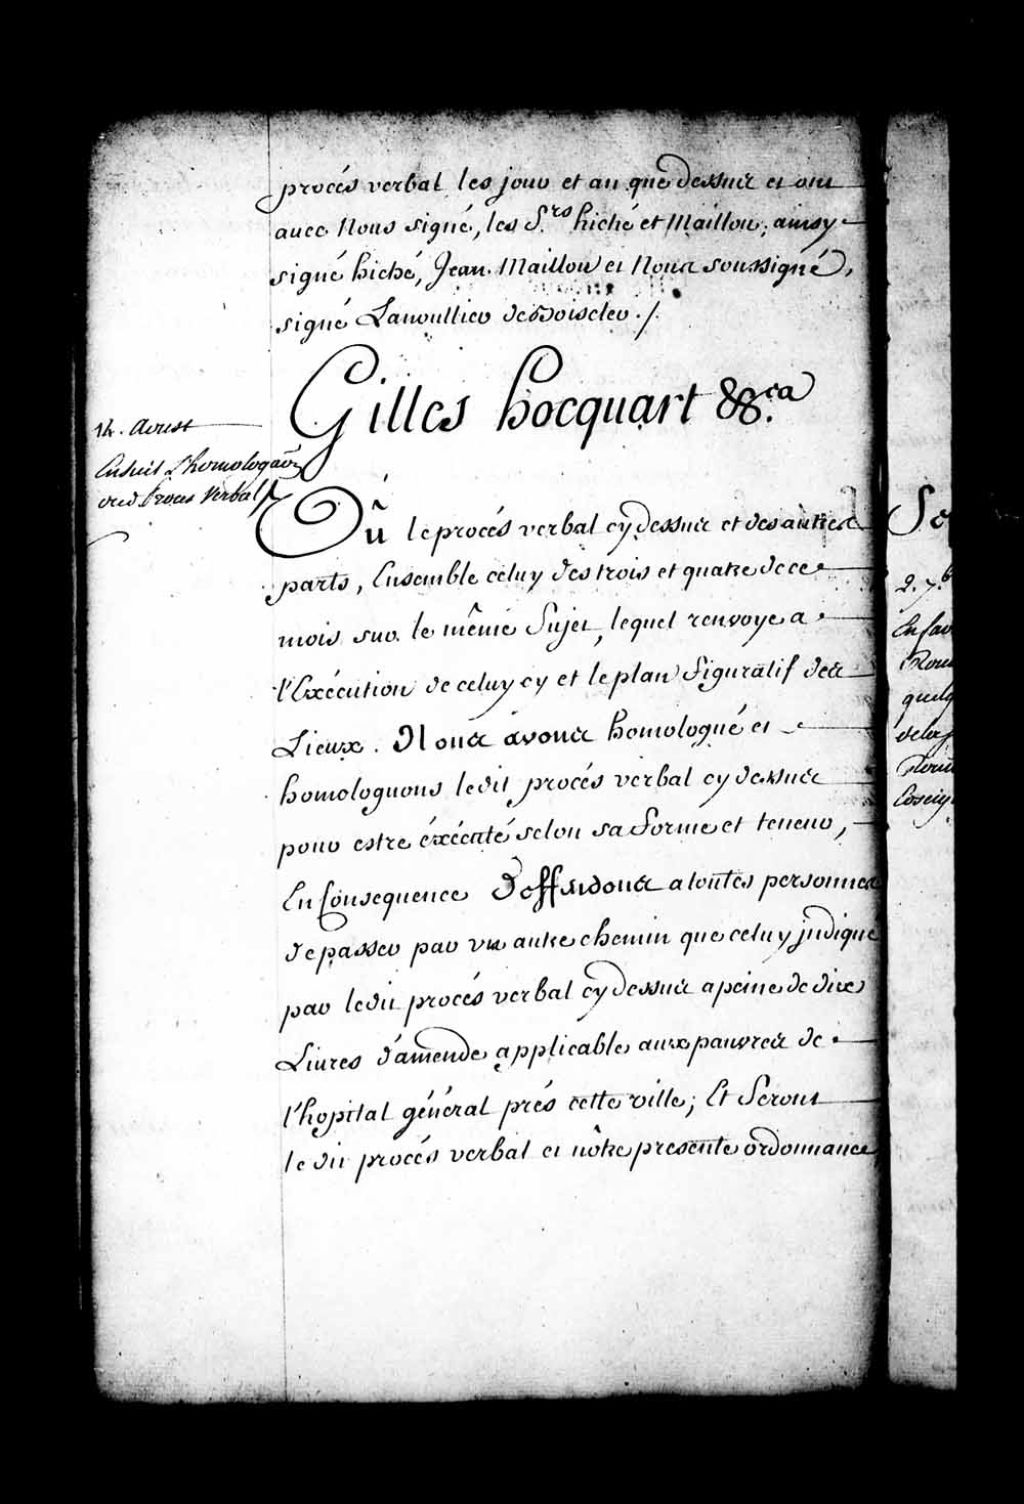 procés verbal les jour et an que dessus et ont
avec Nous signé, les S.rs hiché et Maillou, ainsy
signé hiché, Jean Maillou et Nous soussigné,
signé Lanoullier desboiscler ./.
Gilles hocquart &&.ca
14. Aoust
Ensuit L'homologaõn
dud Procés Verbal
Vû le procés verbal cy dessus et des autres
parts, Ensemble celuy des trois et quatre de ce
mois sur le même Sujet, lequel renvoye a
l'Exécution de celuy cy et le plan figuratif des
Lieux. Nous avons homologué et
homologuons ledit procés verbal cy dessus
pour estre éxécuté selon sa forme et teneur,
En Consequence Deffendons a toutes personnes
de passer par un autre chemin que celuy jndiqué
par ledit procés verbal cy dessus a peine de dix
Livres d'amende applicable aux pauvres de
l'hopital général prés cette ville; Et Seront
ledit procés verbal et nôtre presente ordonnance
2. 7.b
En fav
quelq